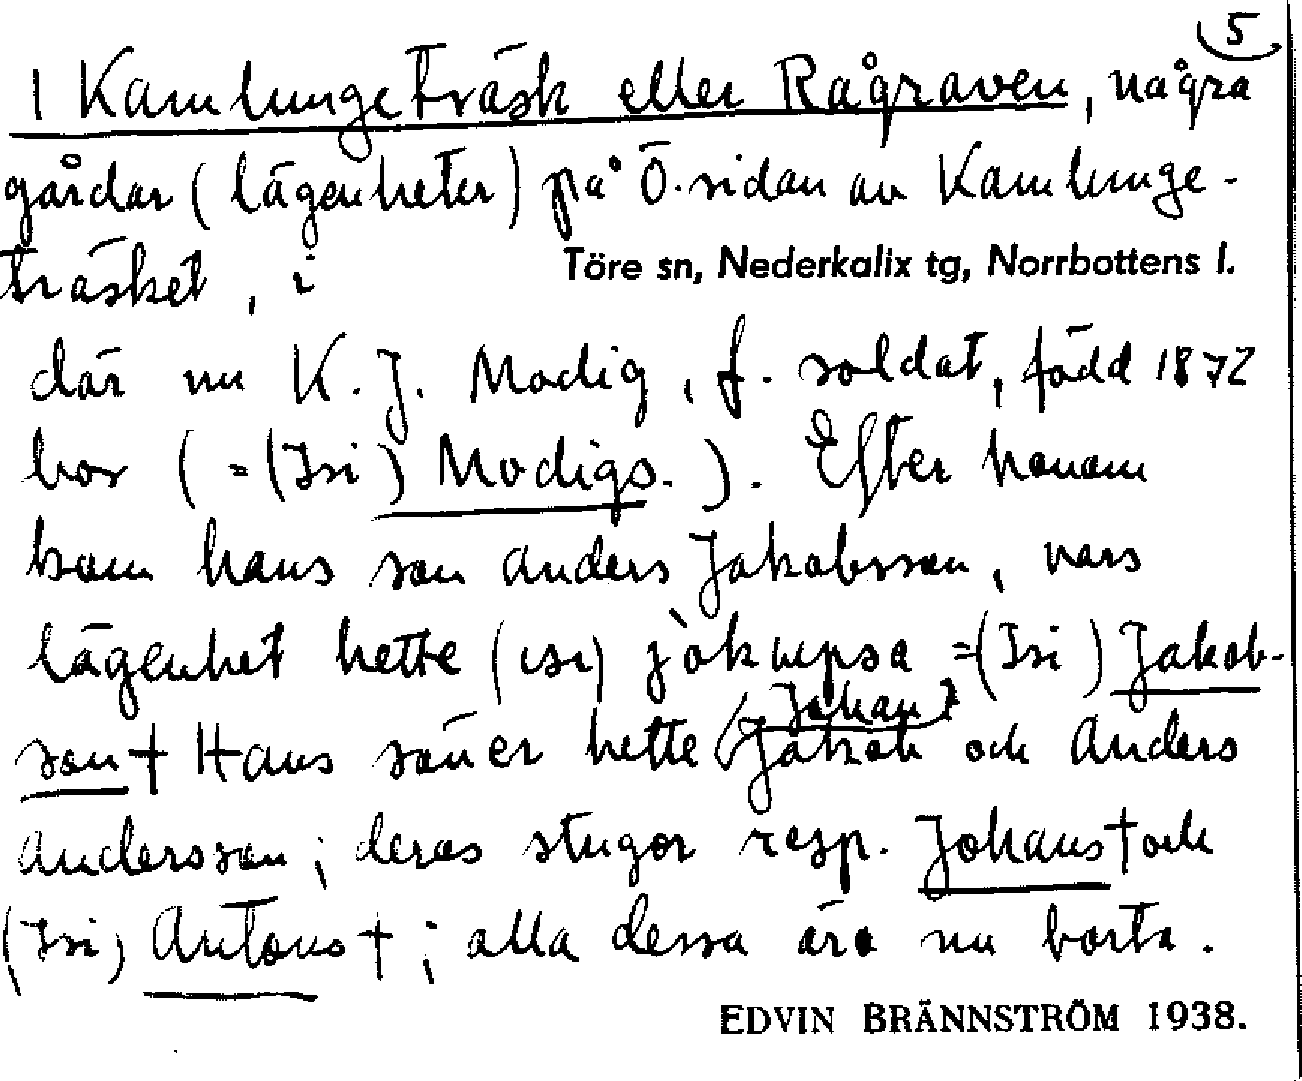 5
I Kamlungeträsk eller Rågraven, några
gårdar (lägenheter) på Ö. sidan av Kamlunge-
träsket, i
Töre sn, Nederkalix tg, Norrbottens l.
där nu K. J. Modig, f. soldat, född 1872
bor (=(Isi) Modigs.). Efter honom
kom hans son Anders Jakobsson, vars
lägenhet hette (isi) =(Isi) Jakob-
son† Hans söner hette (Johan?) Jakob och Anders
Andersson; deras stugor resp. Johans† och
(Isi) Antons†; alla dessa äro nu borta.
EDVIN BRÄNNSTRÖM 1938.